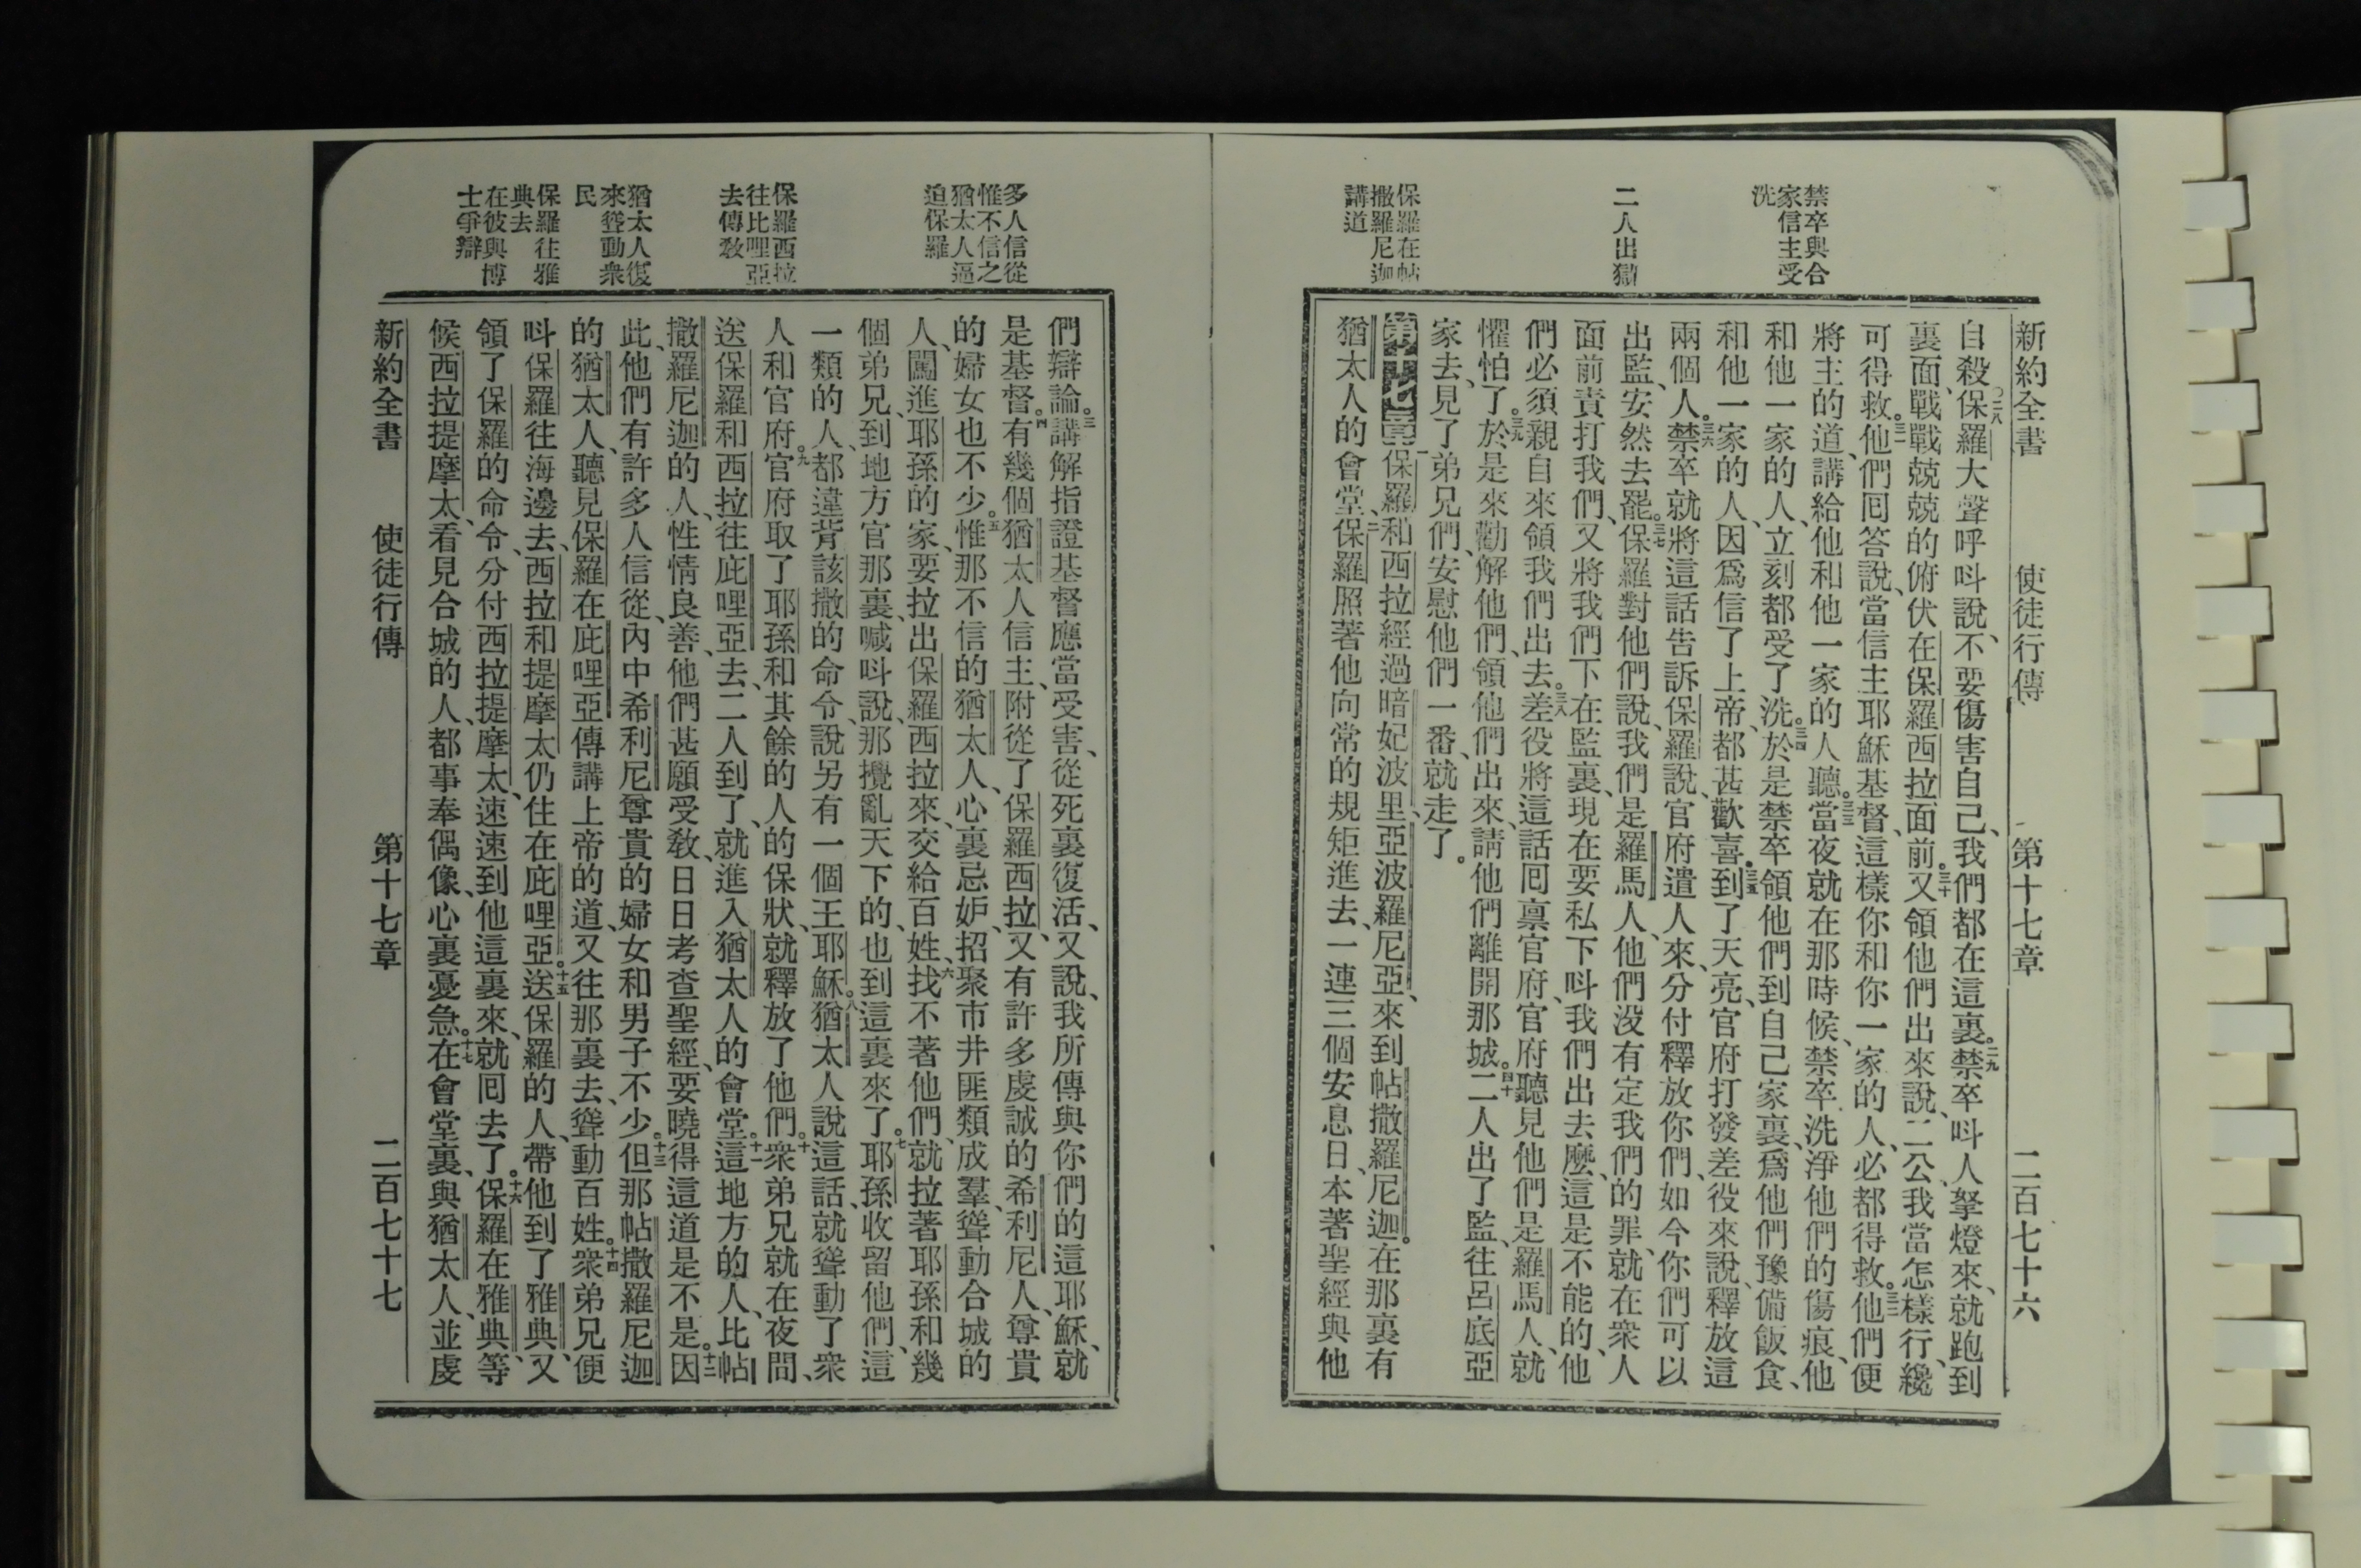 新約全書 使徒行傳 第十七章 二百七十六
禁卒與合
家信主受
洗
二人出獄
保羅在帖
撒羅尼迦
講道
自殺。二八保羅大聲呼呌說、不要傷害自己、我們都在這裏。二九禁卒呌人拏燈來、就跑到
裏面、戰戰兢兢的俯伏在保羅西拉面前。三十又領他們出來說、二公、我當怎樣行、纔
可得救。三一他們回答說、當信主耶穌基督、這樣你和你一家的人、必都得救。三二他們便
將主的道、講給他和他一家的人聽。三三當夜就在那時候、禁卒洗淨他們的傷痕、他
和他一家的人、立刻都受了洗。三四於是禁卒領他們到自己家裏、爲他們豫備飯食、
和他一家的人、因爲信了上帝、都甚歡喜。三五到了天亮、官府打發差役來說、釋放這
兩個人。三六禁卒就將這話告訴保羅說、官府遣人來、分付釋放你們、如今你們可以
出監、安然去罷。三七保羅對他們說、我們是羅馬人、他們沒有定我們的罪、就在衆人
面前責打我們、又將我們下在監裏、現在要私下呌我們出去麽、這是不能的、他
們必須親自來領我們出去。三八差役將這話囘禀官府、官府聽見他們是羅馬人、就
懼怕了。三九於是來勸解他們、領他們出來、請他們離開那城。四十二人出了監、往呂底亞
家去、見了弟兄們、安慰他們一番、就走了。
第十七章 一保羅和西拉經過暗妃波里、亞波羅尼亞、來到帖撒羅尼迦。在那裏有
猶太人的會堂、二保羅照著他向常的規矩進去、一連三個安息日、本著聖經與他
多人信從
惟不信之
猶太人逼
迫保羅
保羅西拉
往比哩亞
去傳敎
猶太人復
來聳動衆
民
保羅往雅
典去
在彼與博
士爭辯
們辯論。三講解指證基督應當受害、從死裏復活、又說、我所傳與你們的這耶穌、就
是基督。四有幾個猶太人信主、附從了保羅西拉、又有許多虔誠的希利尼人、尊貴
的婦女也不少。五惟那不信的猶太人、心裏忌妒、招聚市井匪類成羣、聳動合城的
人、闖進耶孫的家、要拉出保羅西拉來、交給百姓、六找不著他們、就拉著耶孫和幾
個弟兄、到地方官那裏、喊呌說、那攪亂天下的、也到這裏來了。七耶孫收留他們、這
一類的人、都違背該撒的命令、說另有一個王耶穌。八猶太人說這話、就聳動了衆
人和官府。九官府取了耶孫和其餘的人的保狀、就釋放了他們。十衆弟兄就在夜間、
送保羅和西拉、往庇哩亞去、二人到了、就進入猶太人的會堂。十一這地方的人、比帖
撒羅尼迦的人、性情良善、他們甚願受敎、日日考查聖經、要曉得這道是不是。十二因
此、他們有許多人信從、內中希利尼尊貴的婦女和男子不少。十三但那帖撒羅尼迦
的猶太人、聽見保羅在庇哩亞傳講上帝的道、又往那裏去、聳動百姓。十四衆弟兄便
呌保羅往海邊去、西拉和提摩太仍住在庇哩亞。十五送保羅的人、帶他到了雅典、又
領了保羅的命令、分付西拉提摩太、速速到他這裏來、就囘去了。十六保羅在雅典、等
候西拉提摩太、看見合城的人、都事奉偶像、心裏憂急。十七在會堂裏、與猶太人、並虔
新約全書 使徒行傳 第十七章 二百七十七